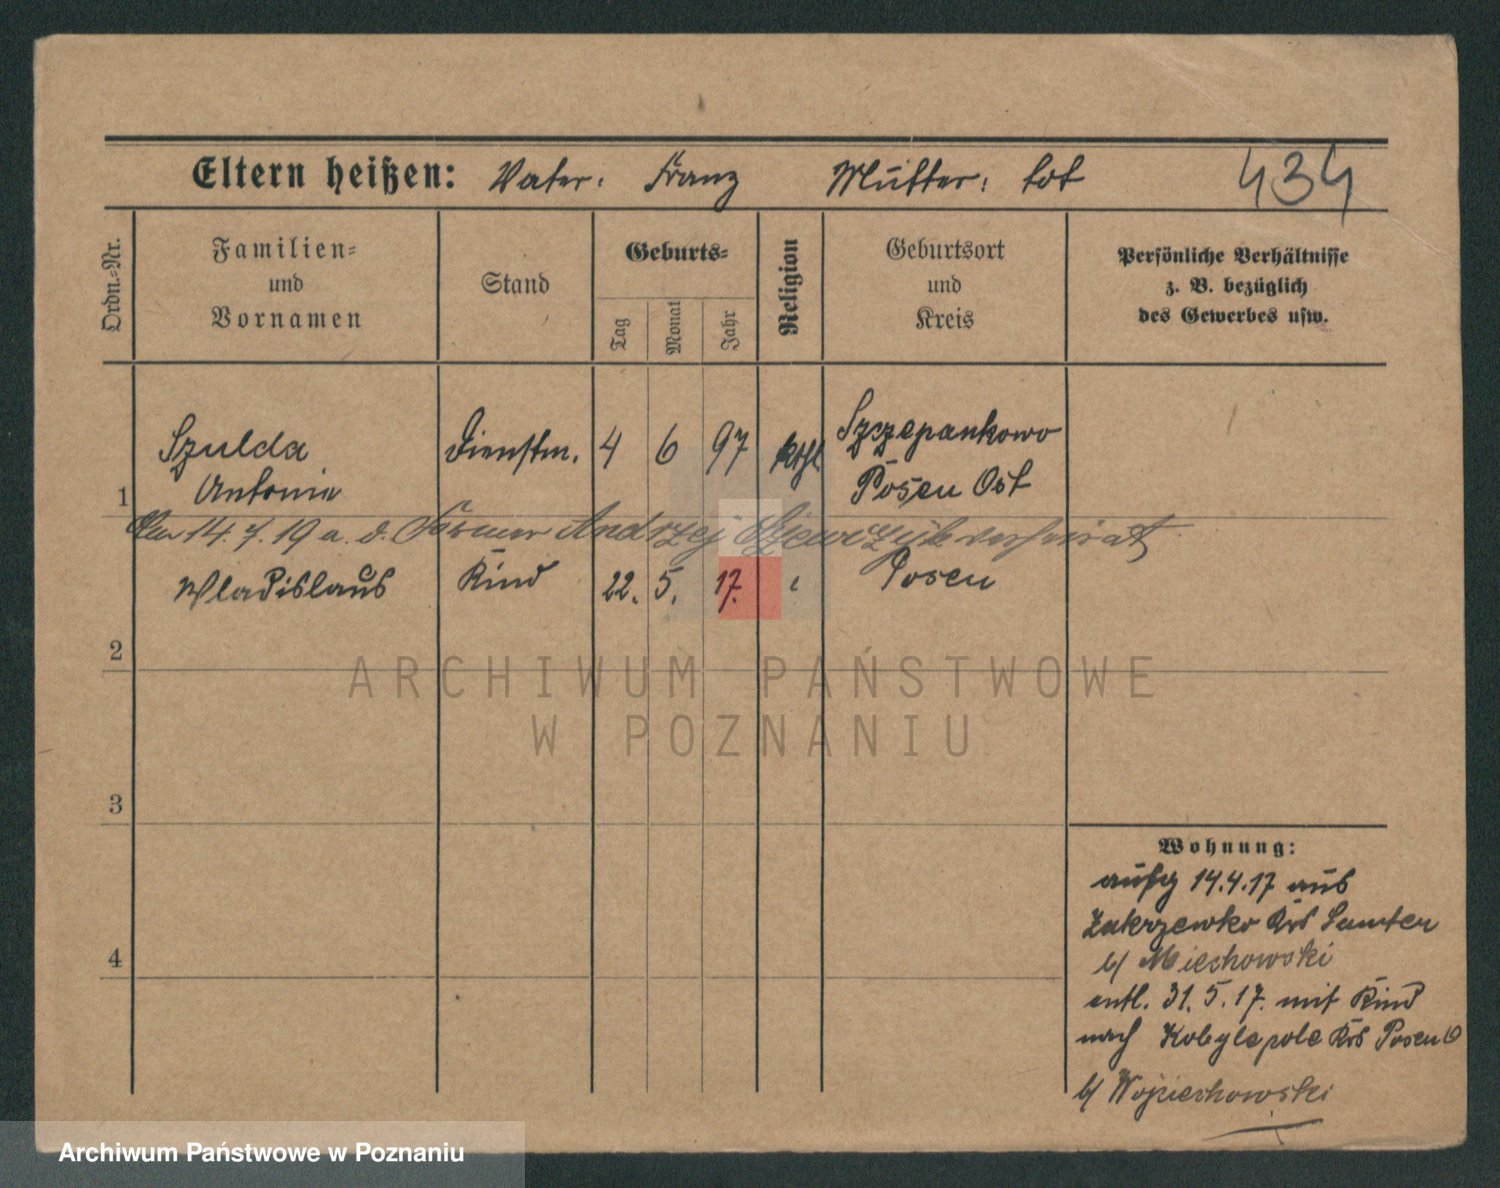 Eltern heißen: Vater: Franz Mutter: tot 434
Ordn.=Nr.
Familien=
und
Vornamen
Stand
Geburts=
Tag
Monat
Jahr
Religion
Geburtsort
und
Kreis
Persönliche Verhältnisse
z. B. bezüglich
des Gewerbes usw.
Szulda Dienstm. 4 6 97 kthl Szczepankowo
1 Antonie Posen Ost
Am 14. 7. 19 a. d. Andrzej verheirat
Wladislaus Kind 22. 5. 17. " Posen
2
3
4
Wohnung:
aufg 14.4.17 aus
Zakrzewko Krs Samter
b/ Miechowski
entl. 31. 5. 17. mit Kind
nach Kobylepole Krs Posen O
b/ Wojciechowski
ARCHIWUM PAŃSTWOWE
W POZNANIU
Archiwum Państwowe w Poznaniu